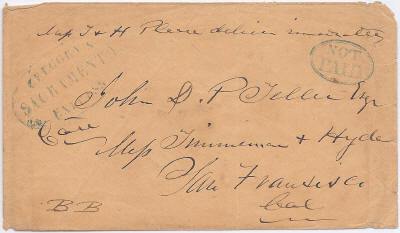 Mess T & H Please deliver immediately
GREGORY'S
SACRAMENTO
EXPRESS
NOT
PAID
John D. P. Teller Esqr
Care
Mess Timmerman & Hyde
San Francisco
Cal
B B